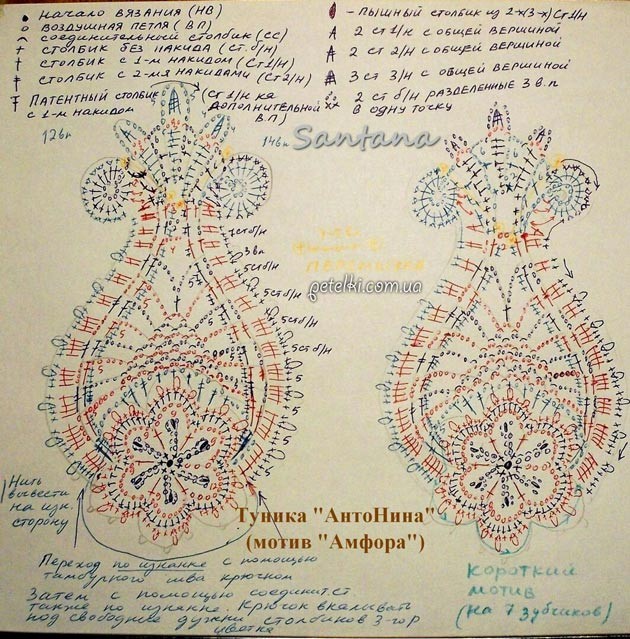 НАЧАЛО ВЯЗАНИЯ (НВ)
ВОЗДУШНАЯ ПЕТЛЯ (ВП)
СОЕДИНИТЕЛЬНЫЙ СТОЛБИК (СС)
СТОЛБИК БЕЗ НАКИДА (СТ.б/Н)
СТОЛБИК С 1-М НАКИДОМ (СТ1/Н)
СТОЛБИК С 2-МЯ НАКИДАМИ (СТ2/Н)
ПАТЕНТНЫЙ СТОЛБИК (СТ1/Н на
С 1-М НАКИДОМ ДОПОЛНИТЕЛЬНОЙ
В.П)
- ПЫШНЫЙ СТОЛБИК ИЗ 2-Х(3-Х) СТ1/Н
2 СТ 1/Н С ОБЩЕЙ ВЕРШИНОЙ
2 СТ 2/Н С ОБЩЕЙ ВЕРШИНОЙ
3 СТ 3/Н С ОБЩЕЙ ВЕРШИНОЙ
2 СТ б/Н РАЗДЕЛЕННЫЕ 3 В.П
В ОДНУ ТОЧКУ
12вп
14вп
Santana
1стб/н
3вп
5стб/н
5стб/н
5стб/н
5стб/н
petelki.com.ua
Нить
вывести
на изн.
сторону
Туника "АнтоНина"
(мотив "Амфора")
Переход по изнанке с помощью
тамбурного шва крючком
Затем с помощью соединит.ст.
также по изнанке. Крючок вкалывать
под свободные дужки столбиков 3-го Р
цветка
КОРОТКИЙ
МОТИВ
(на 7 зубчиков)